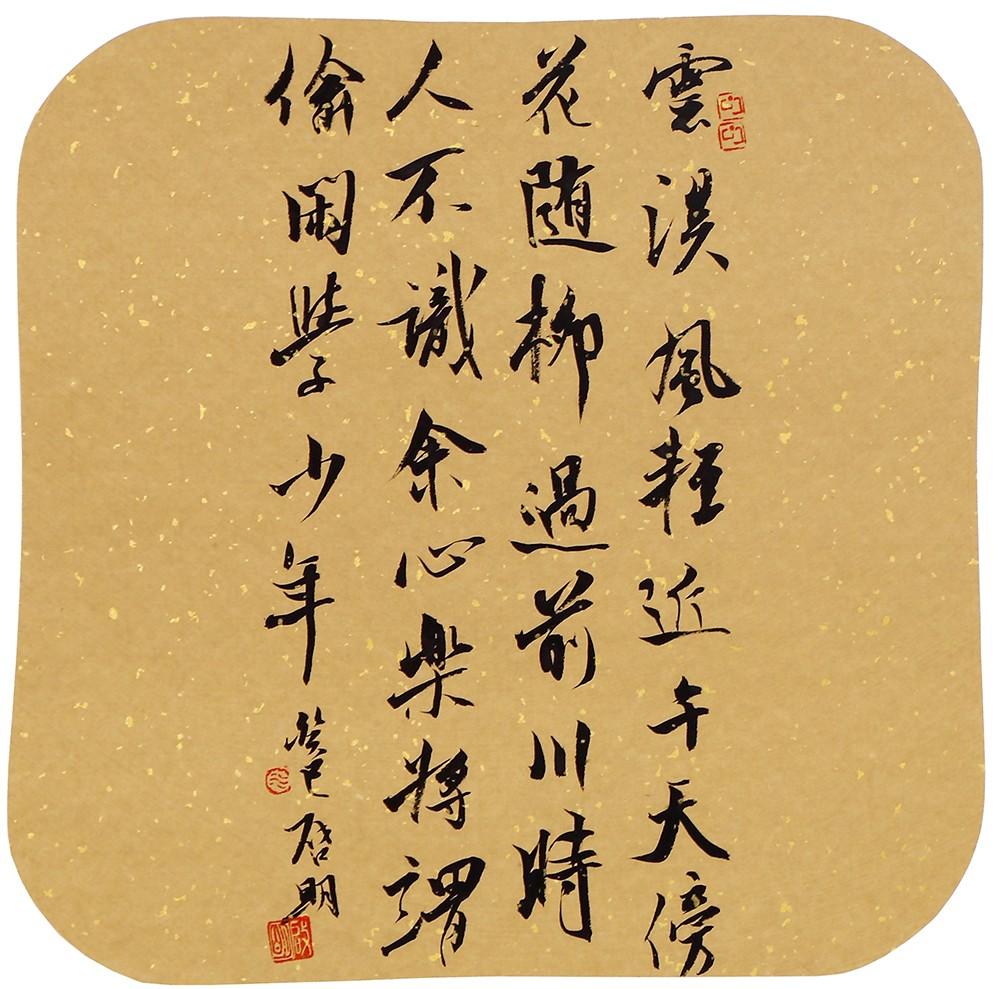 雲淡風輕近午天傍
花随柳過前川時
人不識余心樂將謂
偷閑學少年
癸巳啓明